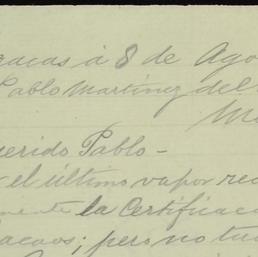 acas á 8 de Ago
Pablo Martínez del
M
erido Pablo –
el último vapor rec
mente la Certificac
acaos; pero no tu